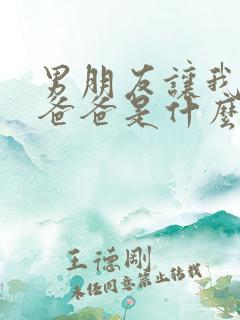 男朋友讓我
爸爸是什麼
王德剛
未经同意禁止转载